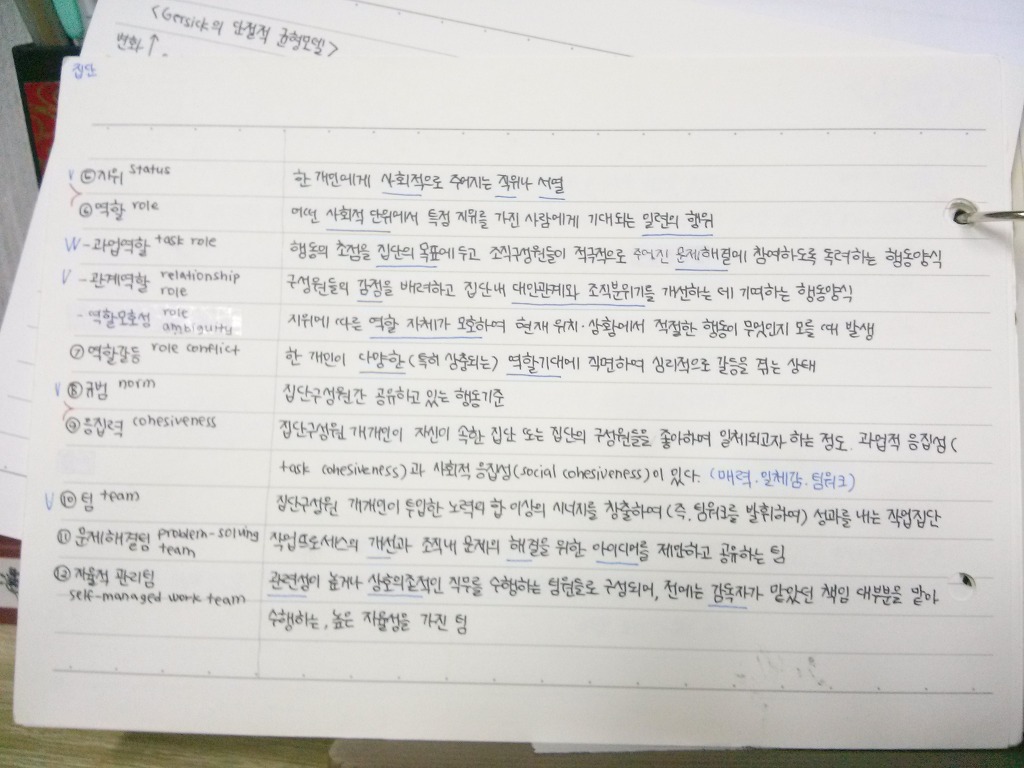 <Gersick의 단절적 균형모델>
변화↑
집단
V ⑤ 지위 status 한 개인에게 사회적으로 주어지는 직위나 서열
⑥ 역할 role 어떤 사회적 단위에서 특정 지위를 가진 사람에게 기대되는 일련의 행위
W - 과업역할 task role 행동의 초점을 집단의 목표에 두고 조직구성원들이 적극적으로 주어진 문제해결에 참여하도록 독려하는 행동양식
V - 관계역할 relationship role 구성원들의 감정을 배려하고 집단내 대인관계와 조직분위기를 개선하는 데 기여하는 행동양식
- 역할모호성 role ambiguity 지위에 따른 역할 자체가 모호하여 현재 위치·상황에서 적절한 행동이 무엇인지 모를 때 발생
⑦ 역할갈등 role conflict 한 개인이 다양한(특히 상충되는) 역할기대에 직면하여 심리적으로 갈등을 겪는 상태
V ⑧ 규범 norm 집단구성원간 공유하고 있는 행동기준
⑨ 응집력 cohesiveness 집단구성원 개개인이 자신이 속한 집단 또는 집단의 구성원들을 좋아하며 일체되고자 하는 정도. 과업적 응집성(
task cohesiveness)과 사회적 응집성(social cohesiveness)이 있다. (매력.일체감.팀워크)
V ⑩ 팀 team 집단구성원 개개인이 투입한 노력의 합 이상의 시너지를 창출하여(즉, 팀워크를 발휘하여) 성과를 내는 작업집단
⑪ 문제해결팀 problem-solving team 작업프로세스의 개선과 조직내 문제의 해결을 위한 아이디어를 제안하고 공유하는 팀
⑫ 자율적 관리팀 self-managed work team 관련성이 높거나 상호의존적인 직무를 수행하는 팀원들로 구성되어, 전에는 감독자가 맡았던 책임 대부분을 맡아
수행하는, 높은 자율성을 가진 팀